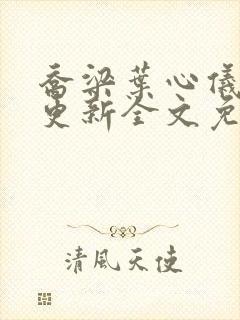 乔梁葉心儀
更新全文免
清風天使